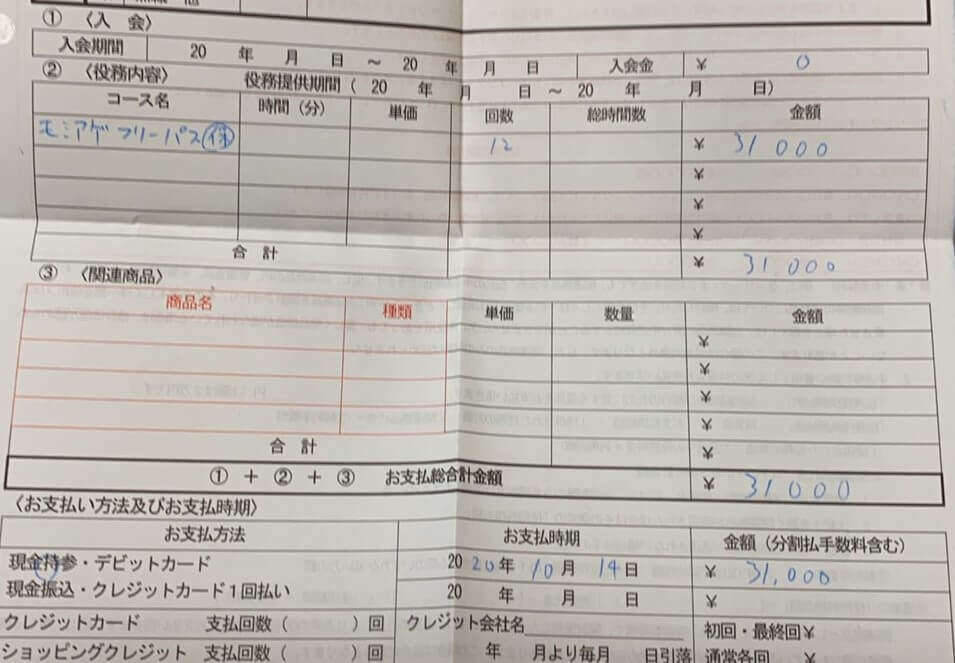 ① 〈入 会〉
入会期間 20 年 月 日 ~ 20 年 月 日 入会金 ¥ 0
② 〈役務内容〉 役務提供期間( 20 年 月 日 ~ 20 年 月 日)
コース名 時間(分) 単価 回数 総時間数 金額
モミアゲ フリーパス 12 ¥ 31 000
¥
¥
¥
合 計 ¥ 31,000
③ 〈関連商品〉
商品名 種類 単価 数量 金額
¥
¥
¥
¥
合 計 ¥
① + ② + ③ お支払総合計金額 ¥ 31000
〈お支払い方法及びお支払時期〉
お支払方法 お支払時期 金額(分割払手数料含む)
現金持参・デビットカード 20 20年 10月 14日 ¥ 31,000
現金振込・クレジットカード1回払い 20 年 月 日 ¥
クレジットカード 支払回数( )回 クレジット会社名 初回・最終回¥
ショッピングクレジット 支払回数( )回 年 月より毎月 日引落 通常各回 ¥